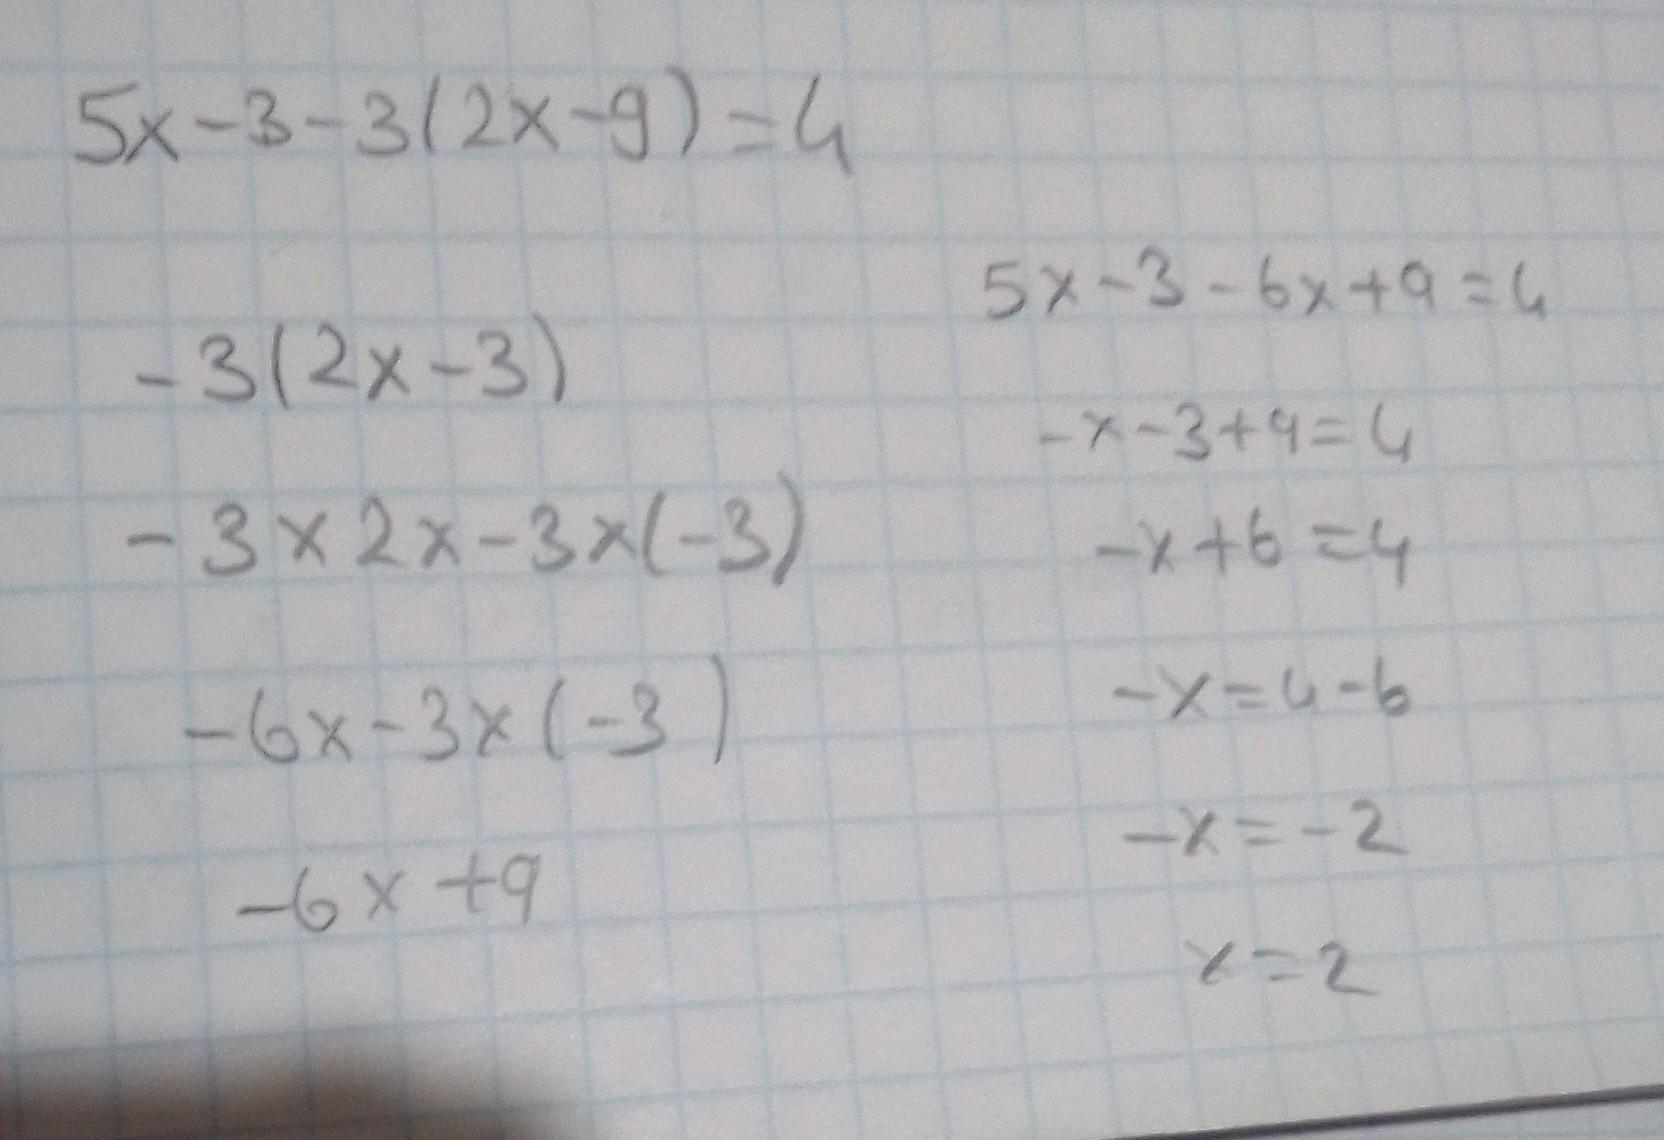 5x-3-3(2x-9)=4
-3(2x-3)
-3x2x-3x(-3)
-6x-3x(-3)
-6x+9
5x-3-6x+9=4
-x-3+9=4
-x+6=4
-x=4-6
-x=-2
x=2